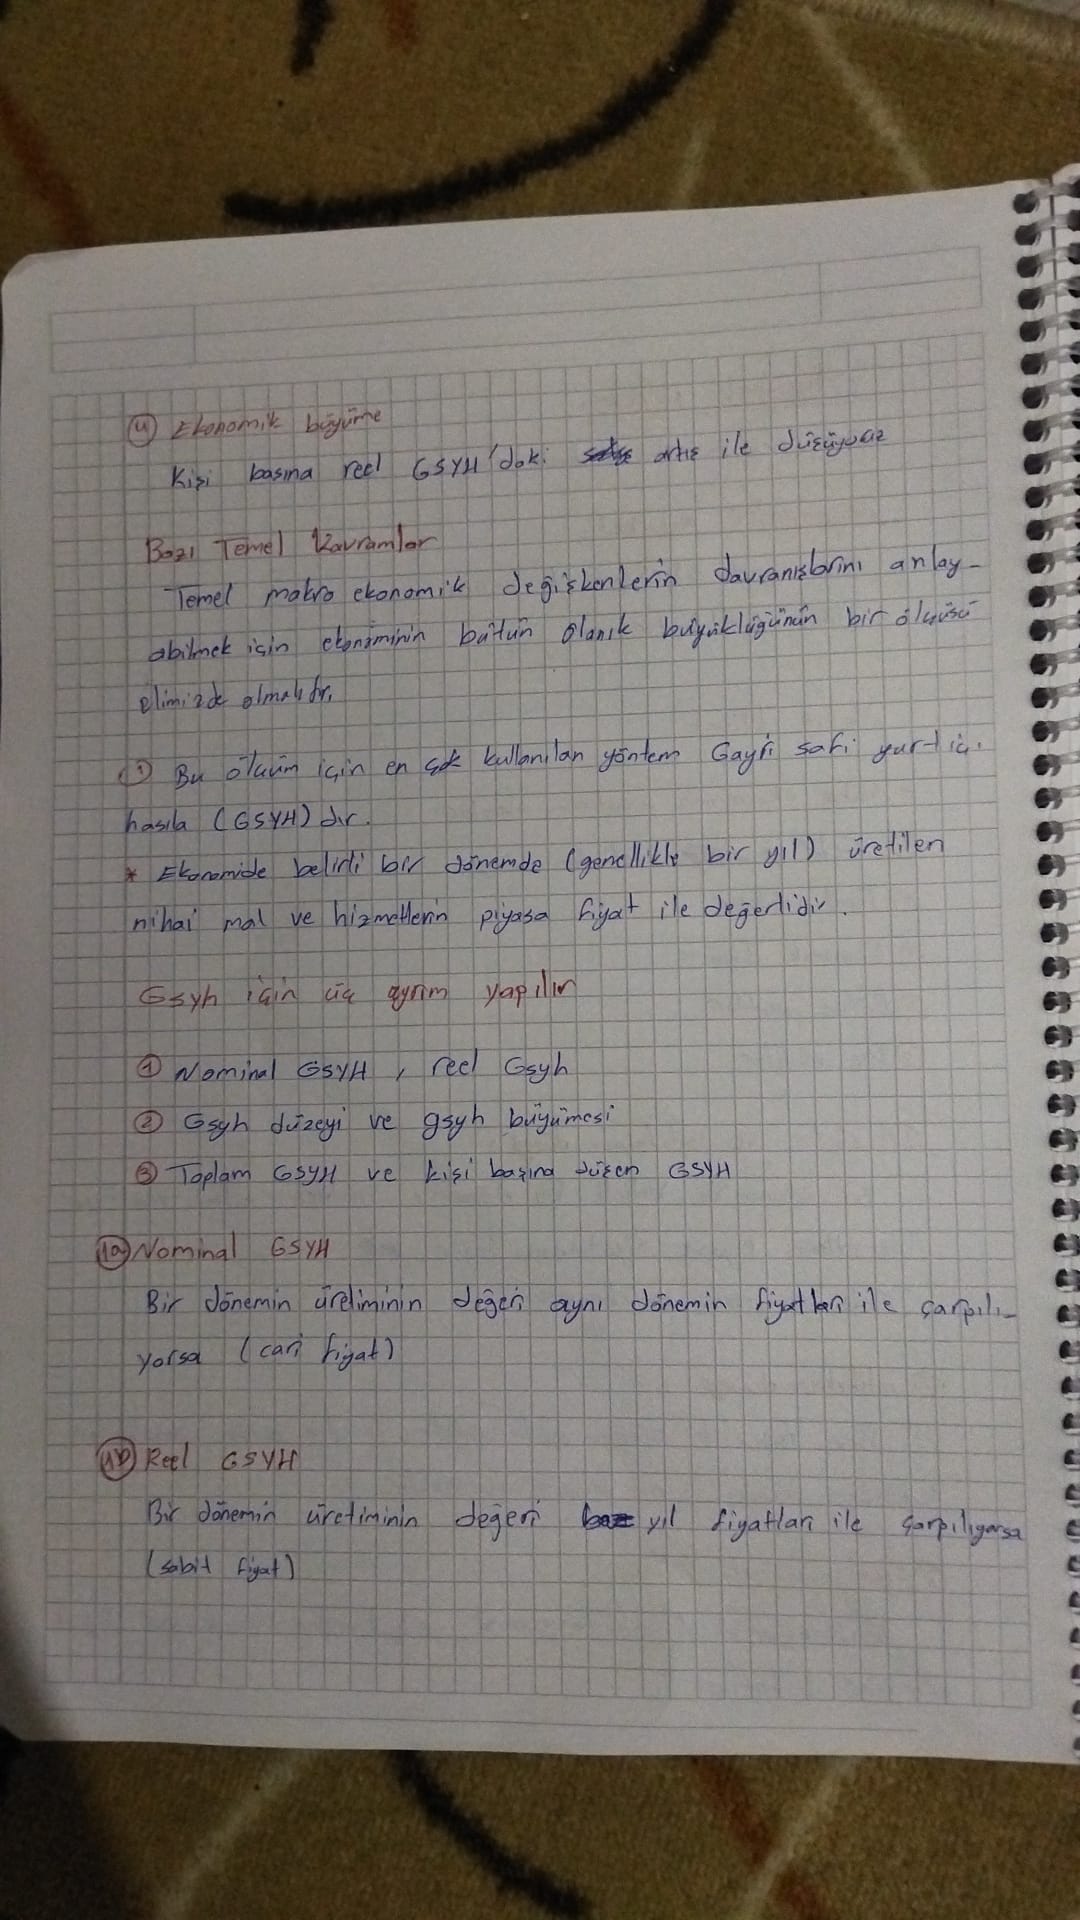 4 Ekonomik büyüme
Kişi başına reel GSYH'daki artış ile düşüyoruz
Bazı Temel Kavramlar
Temel makro ekonomik değişkenlerin davranışlarını anlay-
abilmek için ekonominin bütün olarak büyüklüğünün bir ölçüsü
elimizde olmalıdır.
1 Bu ölçüm için en çok kullanılan yöntem Gayri safi yurt içi
hasıla (GSYH) dır.
* Ekonomide belirli bir dönemde (genellikle bir yıl) üretilen
nihai mal ve hizmetlerin piyasa fiyat ile değerlidir.
Gsyh için üç ayrım yapılır
1 Nominal GSYH, reel Gsyh
2 Gsyh düzeyi ve gsyh büyümesi
3 Toplam GSYH ve kişi başına düşen GSYH
1a Nominal GSYH
Bir dönemin üretiminin değeri aynı dönemin fiyatları ile çarpılı-
yorsa (cari fiyat)
1b Reel GSYH
Bir dönemin üretiminin değeri baz yıl fiyatları ile çarpılıyorsa
(sabit fiyat)